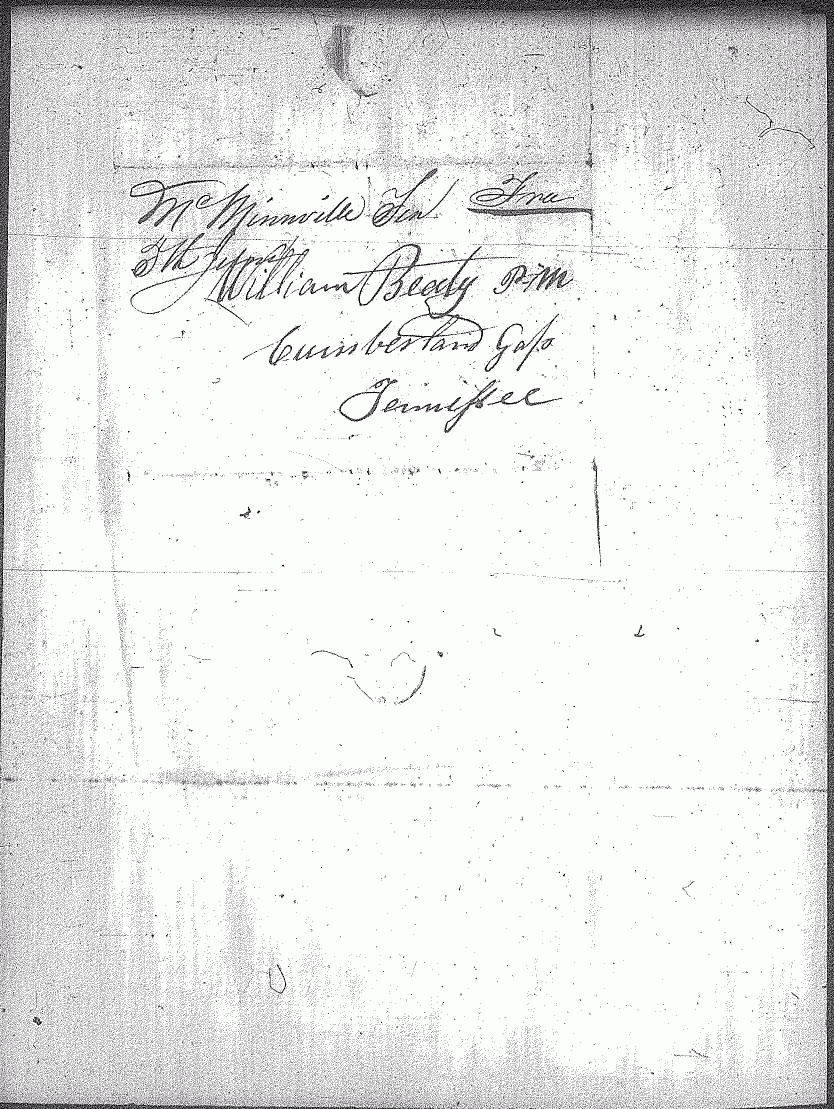 McMinnville Ten Free
5th June
William Beaty P.M
Cumberland Gap
Tennessee